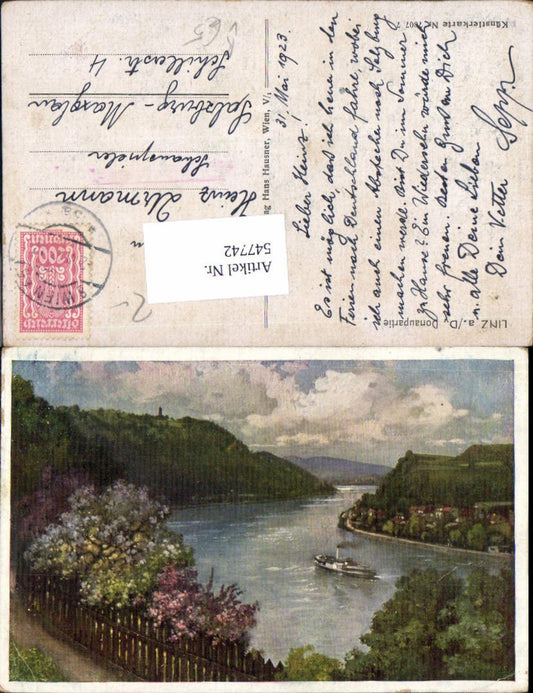 Künstlerkarte Nr. 7007. 7
31. Mai 1923.
Lieber Heinz!
Es ist möglich, daß ich heuer in den
Ferien nach Deutschland fahre, wobei
ich auch einen Abstecher nach Salzburg
machen werde. Bist Du im Sommer
zu Hause? Ein Wiedersehn würde mich
sehr freuen. Besten Gruß an Dich
u. alle Deine Lieben
Dein Vetter Sepp
LINZ a./D. Donaupartie
Hans Hausner, Wien, V.
Heinz
Schauspieler
Salzburg-Maxglan
Schillerstr. 4
200
WIEN
Artikel Nr.
547742